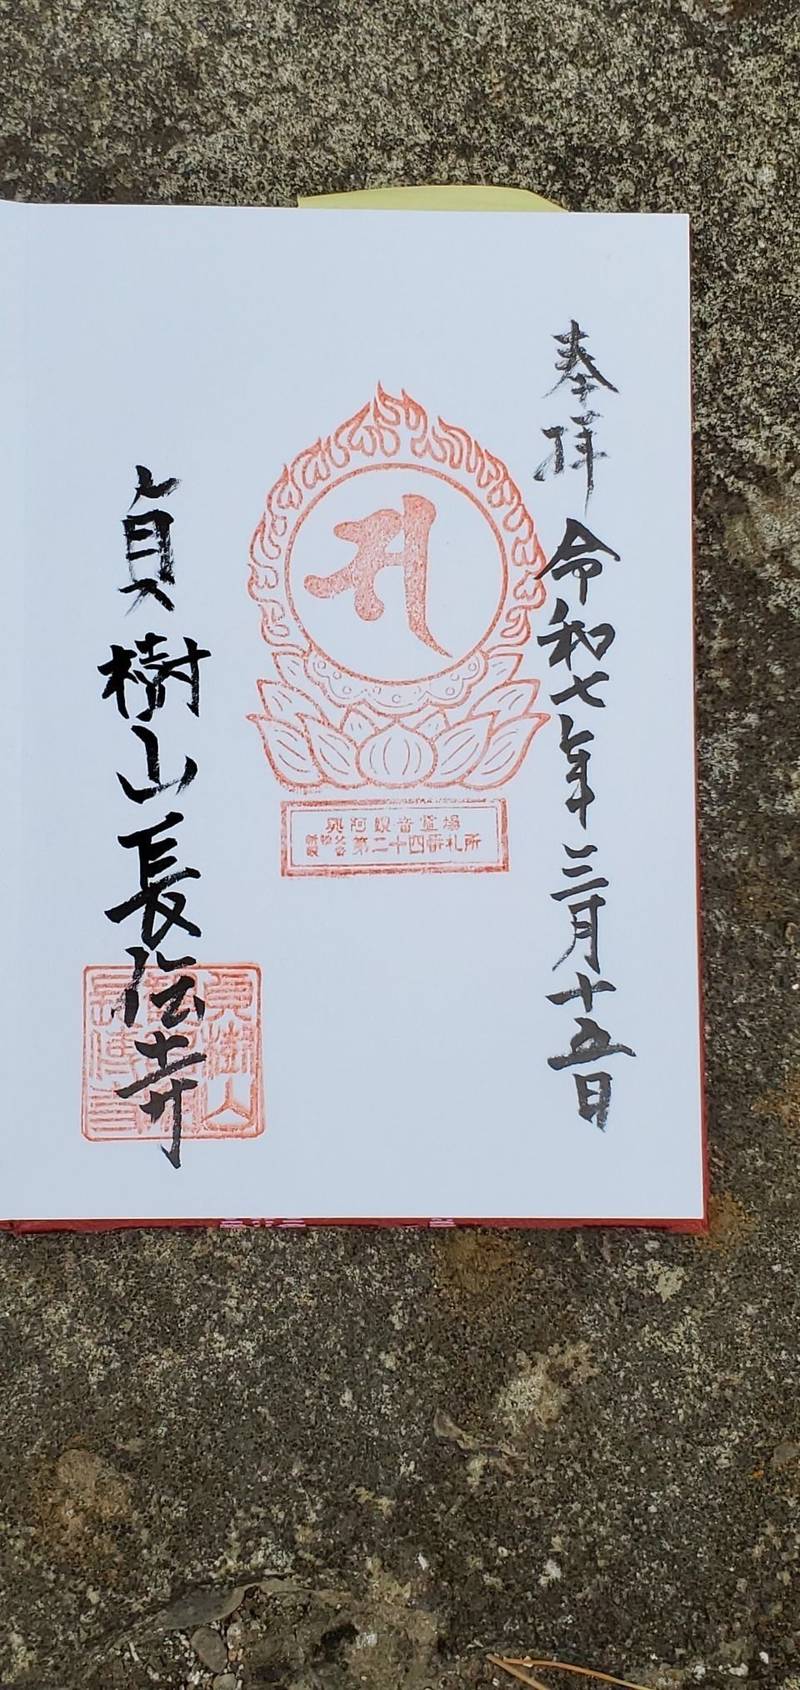 奉拝 令和七年三月十五日
観音霊場
第二十四番札所
貞樹山長伝寺
貞樹山
長傳寺